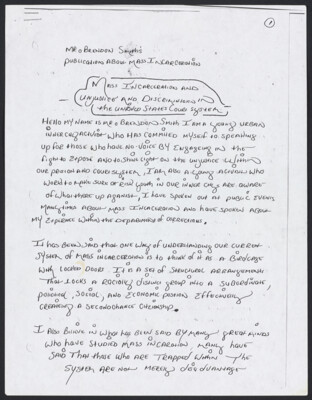 1
Mr. Brendon Smith's
publication About Mass Incarceration
Mass Incarceration and
unjustice and Discrimination in
the United States Court System
Hello my name is Mr. Brendon Smith I am a young urban
innercity activor who has commited myself to speaking
up for those who have no voice by Engageing in the
fight to Expose and to shine light on the unjustice within
our prison and court system, I am also a young activor who
work to make sure at risk youth in our inner city are aware
of who there up against, I have spoken out at public events
many times about mass Incarceration and have spoken about
my Experience within the Department of corrections.
It has been said that one way of understanding our current
system of mass incarceration is to think of it as a Birdcage
with locked doors. It is a set of structural arrangements
that locks a racially distinct group into a subordinate,
political, social, and economic position, effectively
creating a second chance citizenship.
I also believe in what has been said by many great minds
who have studied mass incarceration, many have
said that those who are trapped within the
system are not merely disadvantage